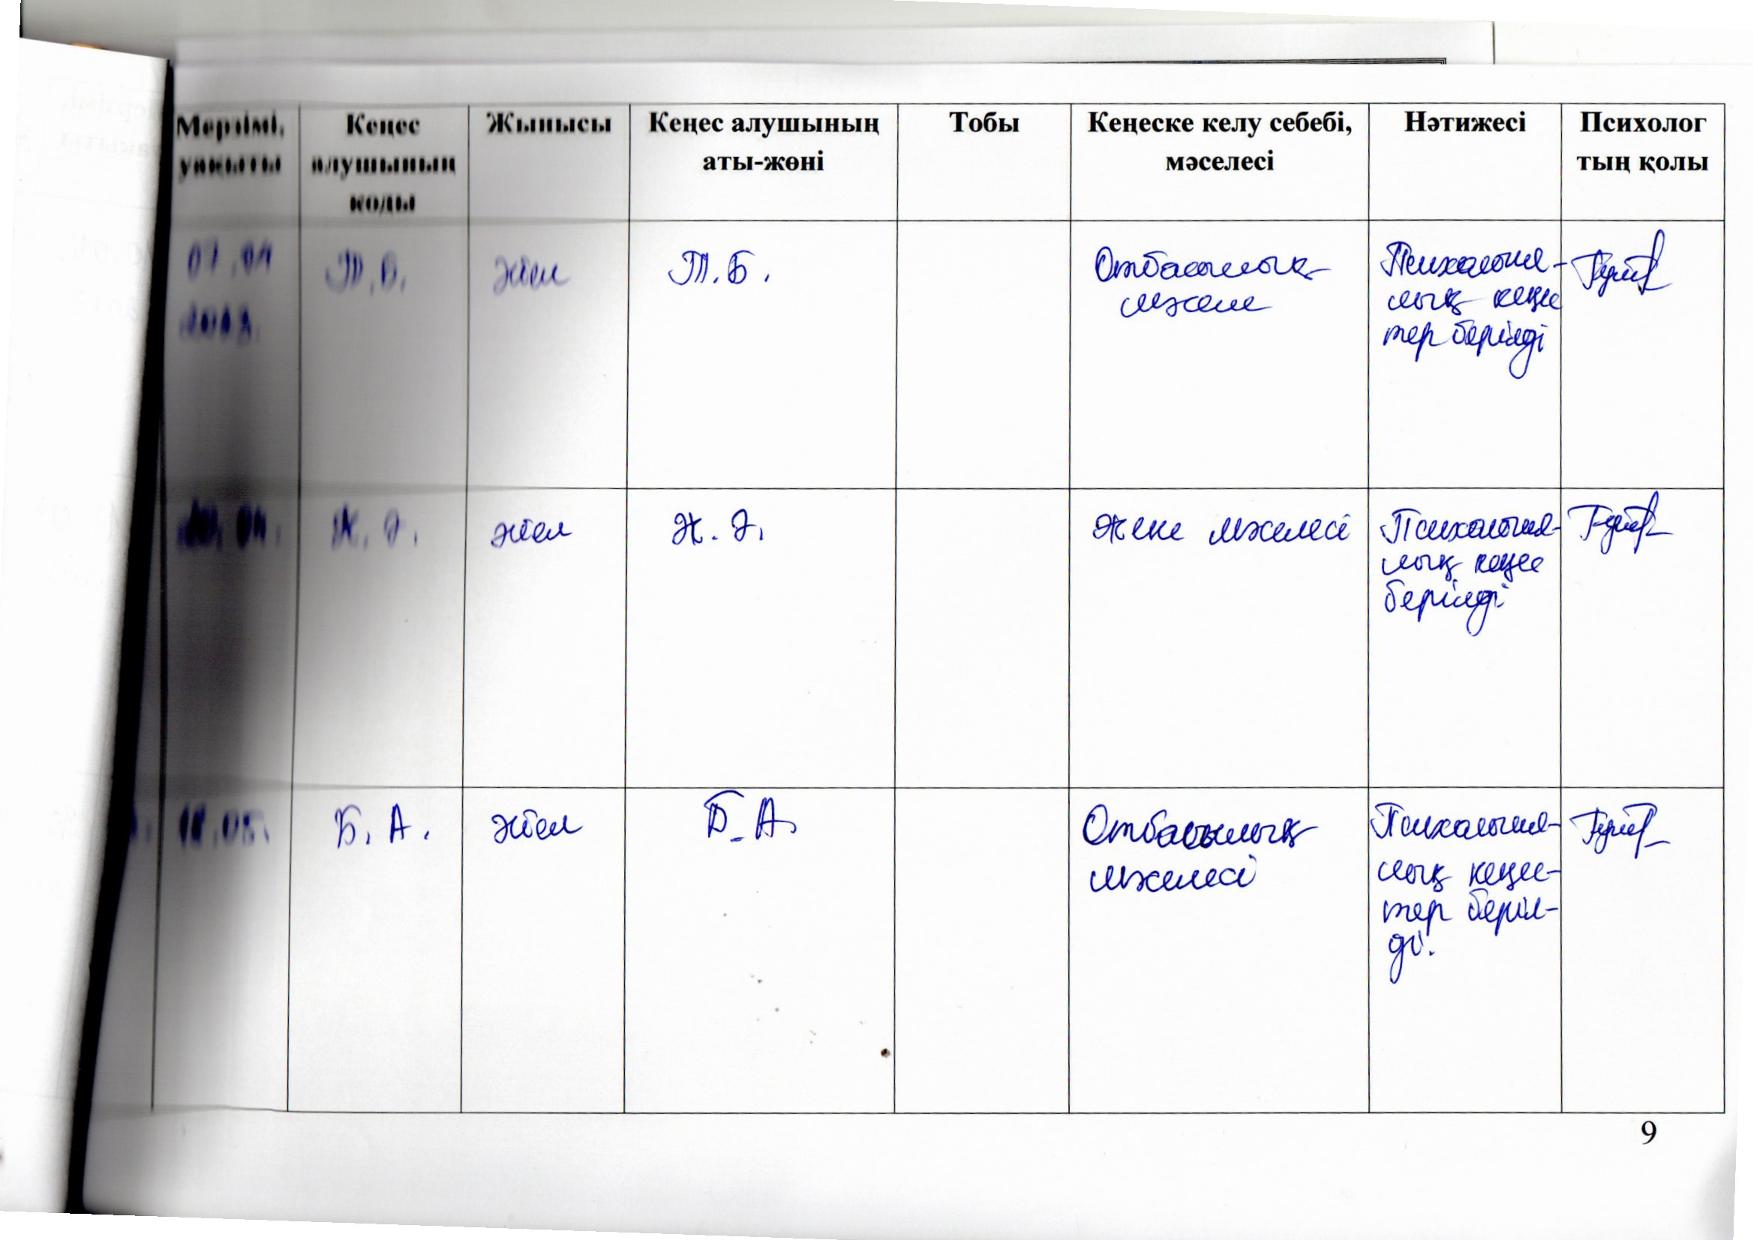 Мерзімі, уақыты
Кеңес алушының коды
Жынысы
Кеңес алушының аты-жөні
Тобы
Кеңеске келу себебі, мәселесі
Нәтижесі
Психолог тың қолы
07.04
Т.Б.
әйел
Т.Б.
Отбасылық
мәселе
Психология-
лық кеңес
тер берілді
Ж.Ә.
әйел
Ж.Ә.
Жеке мәселесі
Психология-
лық кеңес
берілді
Б.А.
әйел
Б.А.
Отбасылық
мәселесі
Психология-
лық кеңес-
тер беріл-
ді.
9